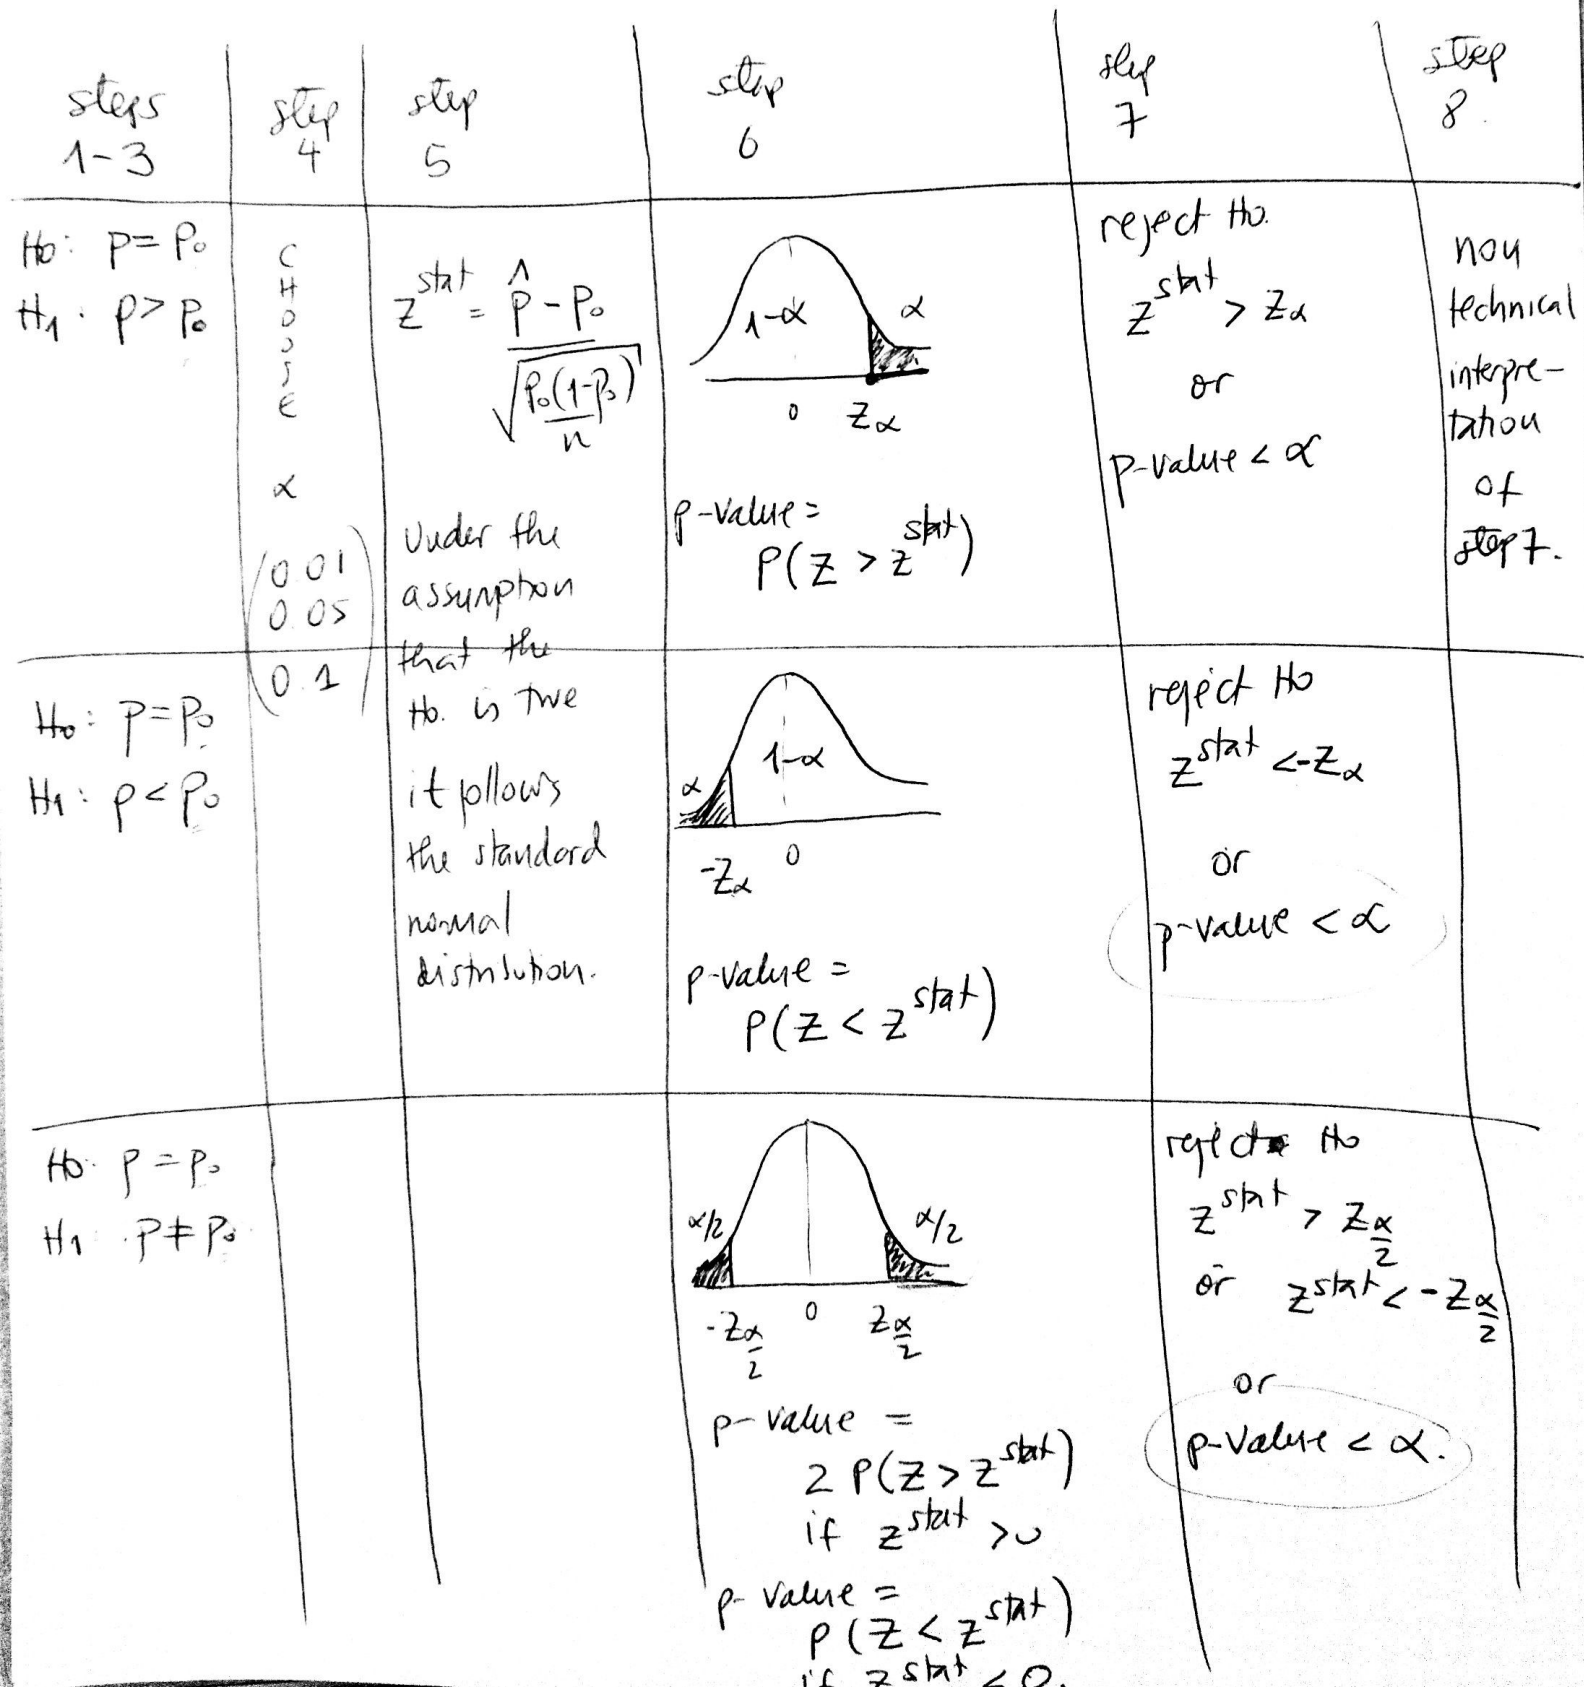 steps
1-3
step
4
step
5
step
6
step
7
step
8.
H0: p = p0
H1: p > p0
C
H
O
O
S
E
α
0.01
0.05
0.1
z^stat = p̂ - p0
√ p0(1-p0)
n
Under the
assumption
that the
H0. is true
it follows
the standard
normal
distribution.
1-α
α
0
zα
p-value =
P(Z > z^stat)
reject H0.
z^stat > zα
or
p-value < α
non
technical
interpre-
tation
of
step 7.
H0: p = p0
H1: p < p0
α
1-α
-zα
0
p-value =
P(Z < z^stat)
reject H0
z^stat < -zα
or
p-value < α
H0: p = p0
H1: p ≠ p0
α/2
α/2
-zα/2
0
zα/2
p-value =
2 P(Z > z^stat)
if z^stat > 0
p-value =
P(Z < z^stat)
if z^stat < 0.
reject H0
z^stat > zα/2
or z^stat < -zα/2
or
p-value < α.